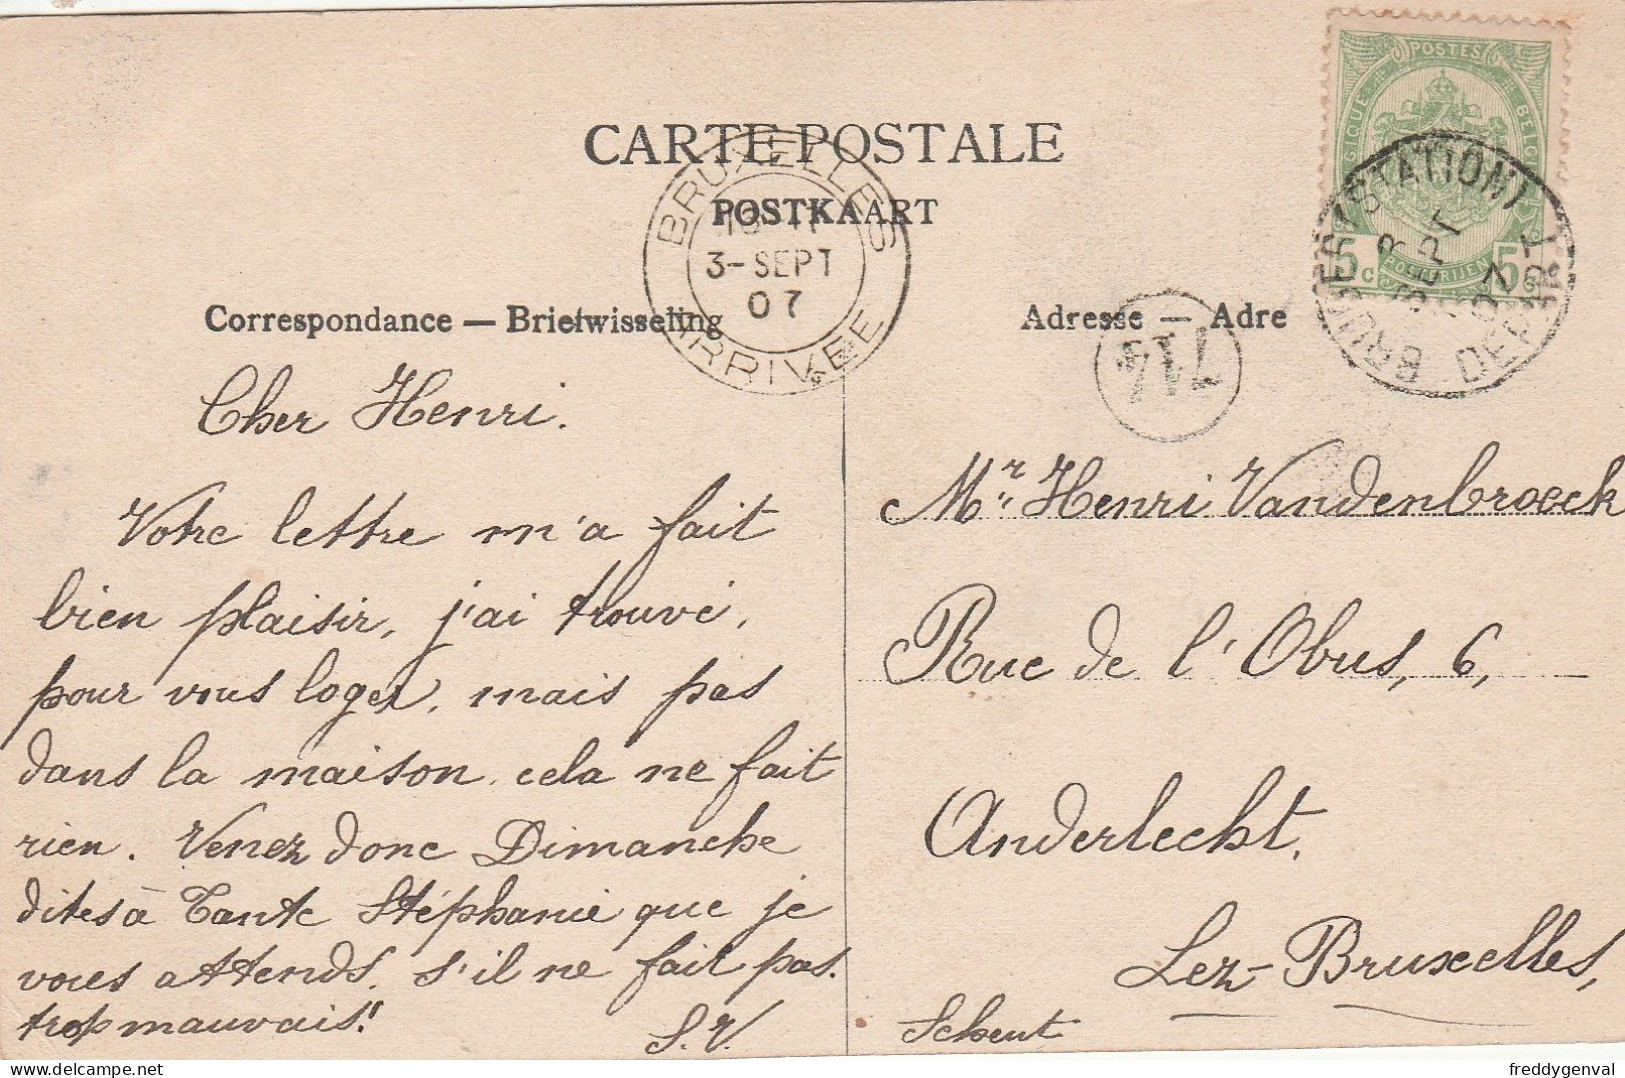 CARTE POSTALE
POSTKAART
Correspondance — Briefwisseling
Adresse — Adre
BRUXELLES
3-SEPT
07
ARRIVÉE
POSTES
BELGIQUE
5c
5c
POSTERIJEN
(STATION)
SEPT
DEPART
Cher Henri.
Votre lettre m'a fait
bien plaisir, j'ai trouvé,
pour vous loger, mais pas
dans la maison cela ne fait
rien. Venez donc Dimanche
dites à Tante Stéphanie que je
vous attends. s'il ne fait pas
trop mauvais!
S.V.
Mr Henri Vandenbroeck
Rue de l'Obus, 6,
Anderlecht,
Lez-Bruxelles,
Scheut
freddygenval